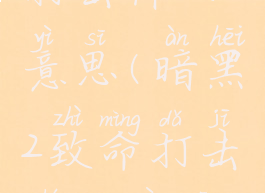 yì sī àn hēi
意思(暗黑
zhì mìng dǎ jī
2致命打击